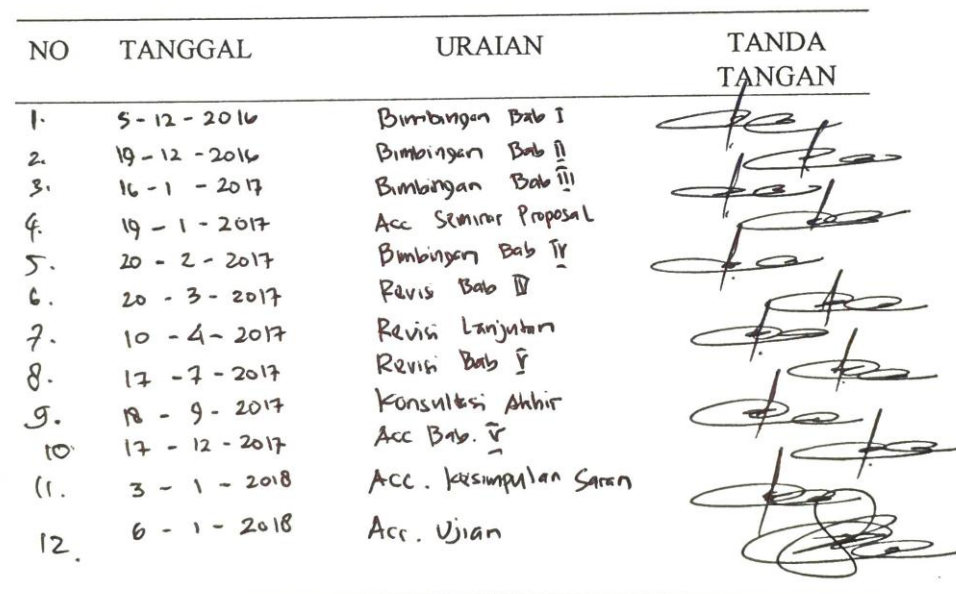 NO TANGGAL URAIAN TANDA TANGAN
1. 5-12-2016 Bimbingan Bab I
2. 19-12-2016 Bimbingan Bab II
3. 16-1-2017 Bimbingan Bab III
4. 19-1-2017 Acc Seminar Proposal
5. 20-2-2017 Bimbingan Bab IV
6. 20-3-2017 Revisi Bab IV
7. 10-4-2017 Revisi Lanjutan
8. 17-7-2017 Revisi Bab V
9. 18-9-2017 Konsultasi Akhir
10. 17-12-2017 Acc Bab. V
11. 3-1-2018 Acc. Kesimpulan Saran
12. 6-1-2018 Acc. Ujian